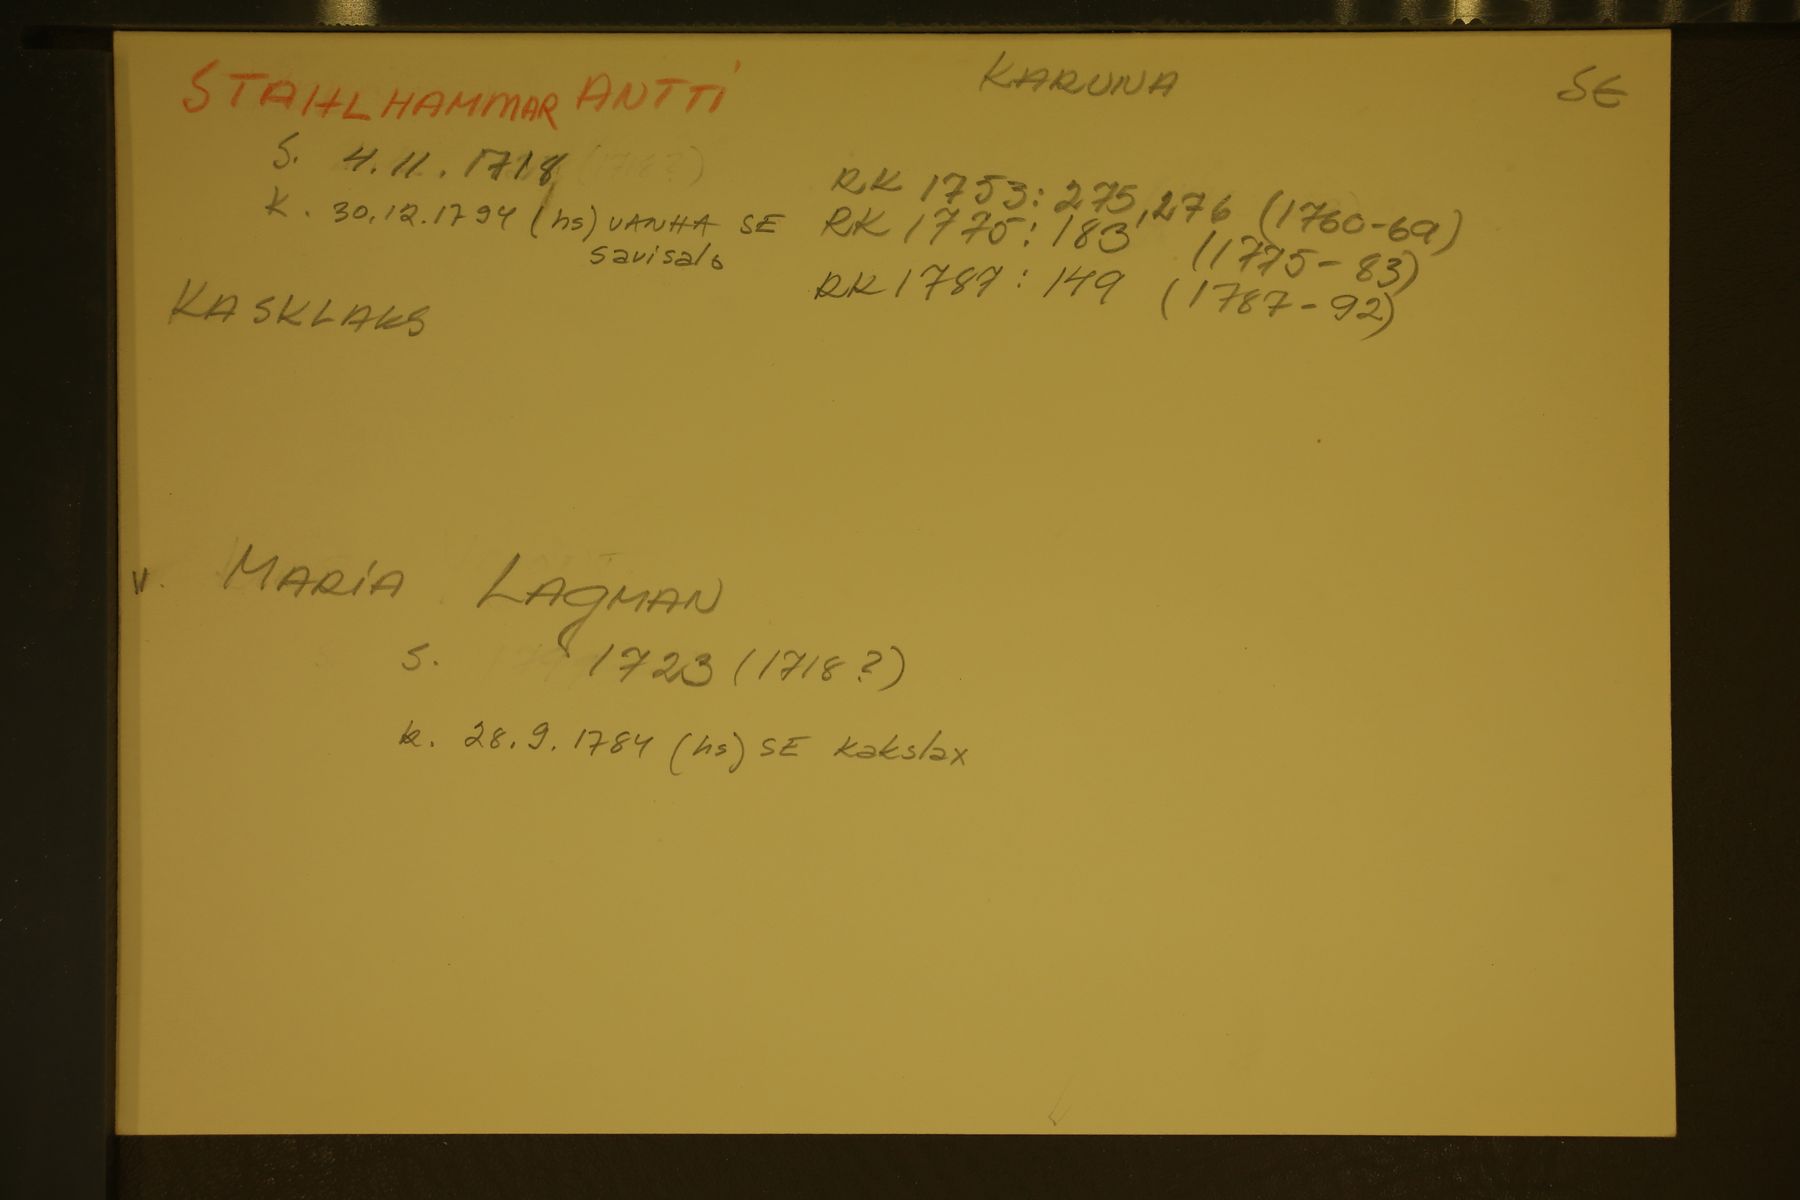 STAHLHAMMAR ANTTI KARUNA SE
S. 4.11.1718
k. 30.12.1794 (hs) VANHA SE
Savisalo
RK 1753: 275, 276 (1760-69)
RK 1775: 183 (1775-83)
RK 1787: 149 (1787-92)
KASKLAKS
v. MARIA LAGMAN
S. 1723 (1718?)
k. 28.9.1784 (hs) SE Kakslax